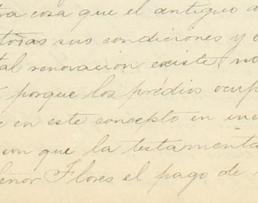 tra cosa que el antiguo a
toras sus condiciones y c
tal renovacion existe, no
porque los prédios ocup
e en este concepto en in
ion que la testamenta
eñor Flores el pago de